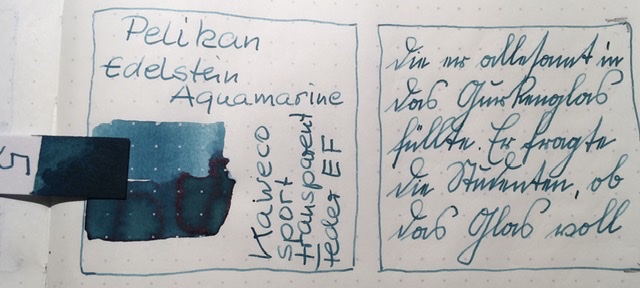 Pelikan
Edelstein
Aquamarine
Kaweco
Sport
transparent
feder EF
5
die er allesamt in
das Gurkenglas
füllte. Er fragte
die Studenten, ob
das Glas voll